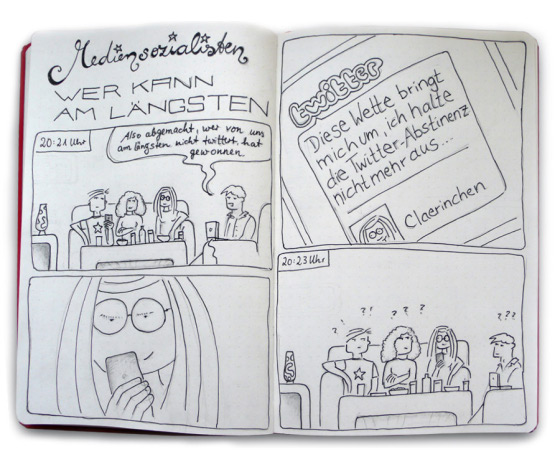 Mediensozialisten
WER KANN
AM LÄNGSTEN
20:21 Uhr
Also abgemacht, wer von uns
am längsten nicht twittert, hat
gewonnen.
twitter
Diese Wette bringt
mich um, ich halte
die Twitter-Abstinenz
nicht mehr aus...
Claerinchen
20:23 Uhr
? !
? ? ?
???